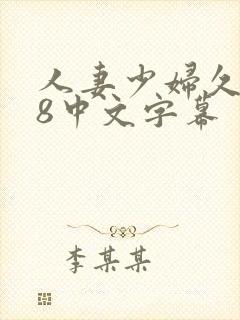 人妻少婦久
8中文字幕
李某某